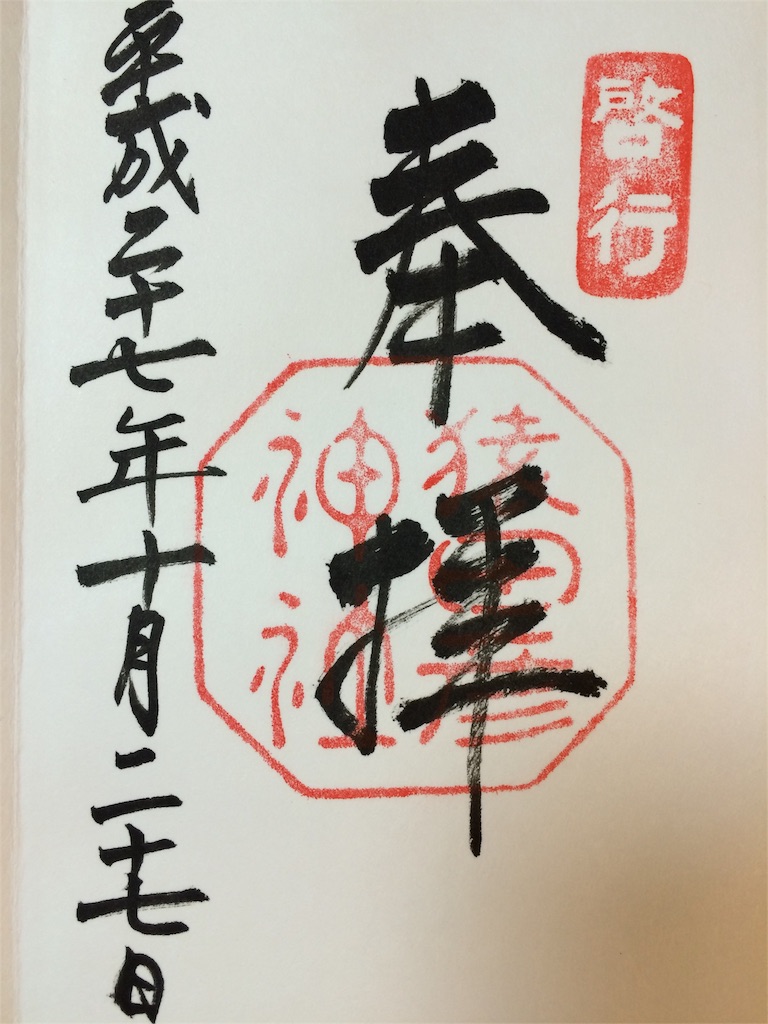 啓行
奉拝
猿田彦
神社
平成二十七年十月二十七日